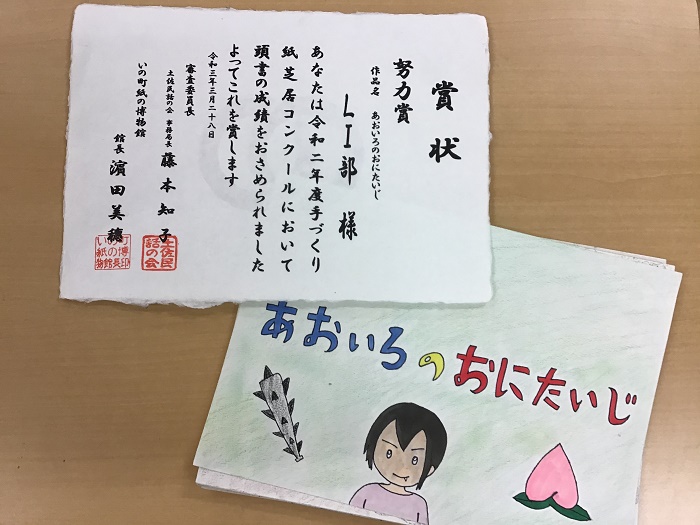 賞状
努力賞
作品名 あおいろのおにたいじ
LI部 様
あなたは令和二年度手づくり
紙芝居コンクールにおいて
頭書の成績をおさめられました
よってこれを賞します
令和三年三月二十八日
審査委員長
土佐民話の会 事務局長 藤本知子
いの町紙の博物館
館長 濵田美穗
土佐民話の会
いの町紙の博物館長印
あおいろのおにたいじ